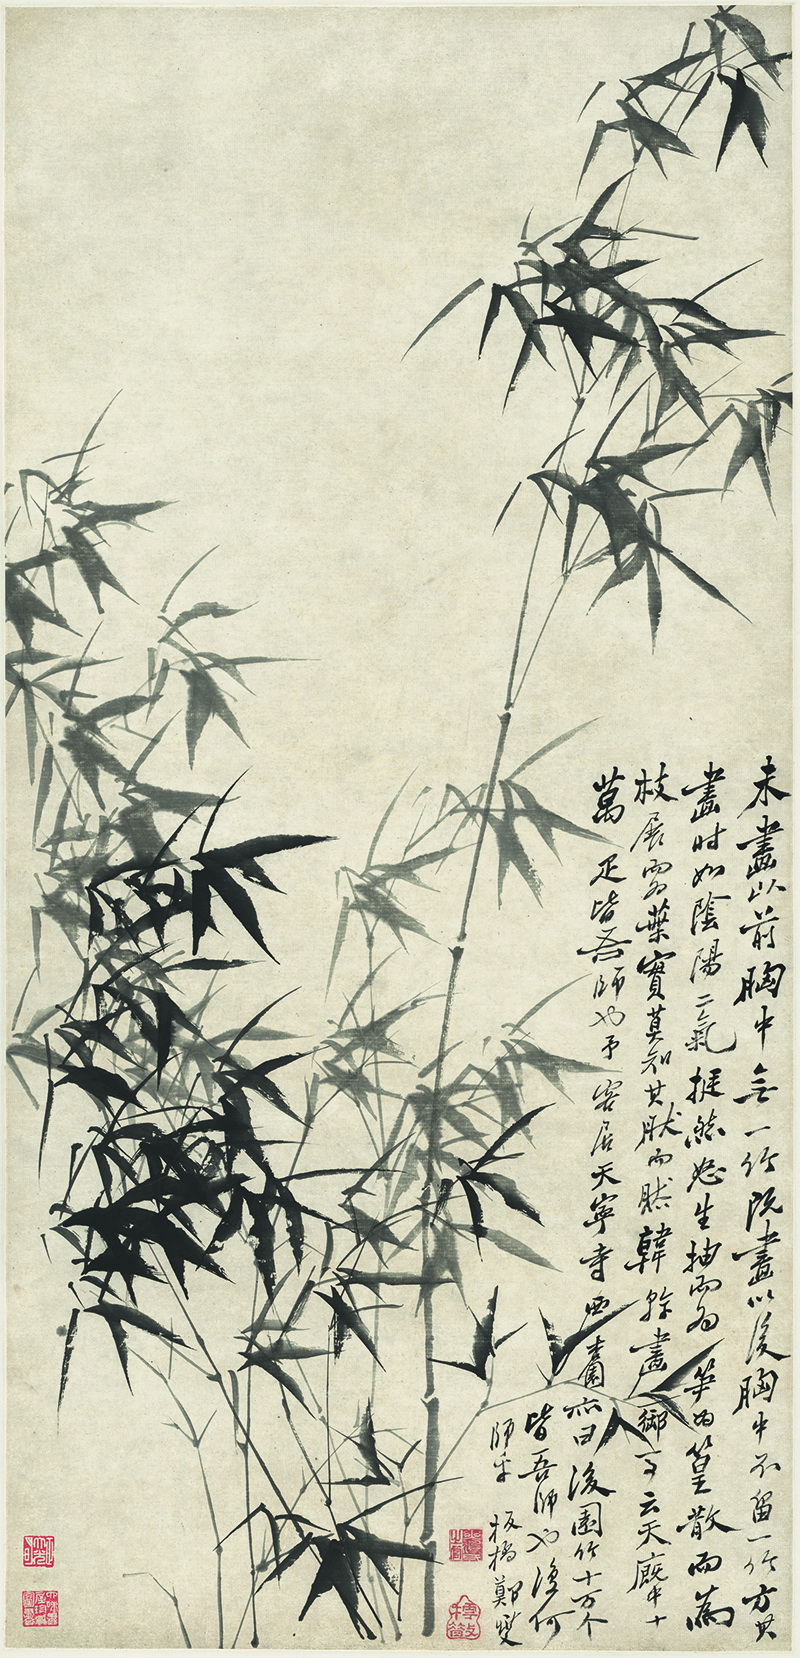 未畫以前胸中無一竹既畫以後胸中不留一竹方其
畫時如陰陽二氣挺然怒生抽而為笋為篁散而為
枝展而為葉實莫知其然而然韓幹畫御馬云天廐中十
萬疋皆吾師也予客居天寧寺西畜亦曰後園竹十万个
皆吾師也復何
師乎板橋鄭燮